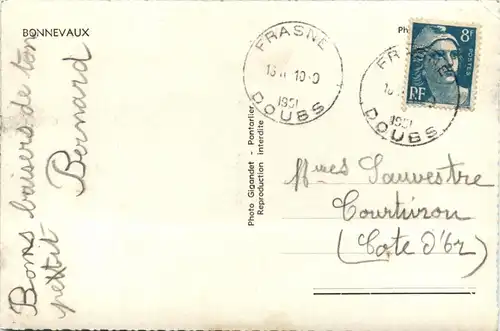 BONNEVAUX
Ph
Bons baisers de ton
petit Bernard
Photo Gigandet - Pontarlier
Reproduction interdite
FRASNE
10-9
1951
DOUBS
8F
POSTES
RF
FRA
1951
DOUBS
Mmes Sauvestre
Courtivron
(Cote d'Or)